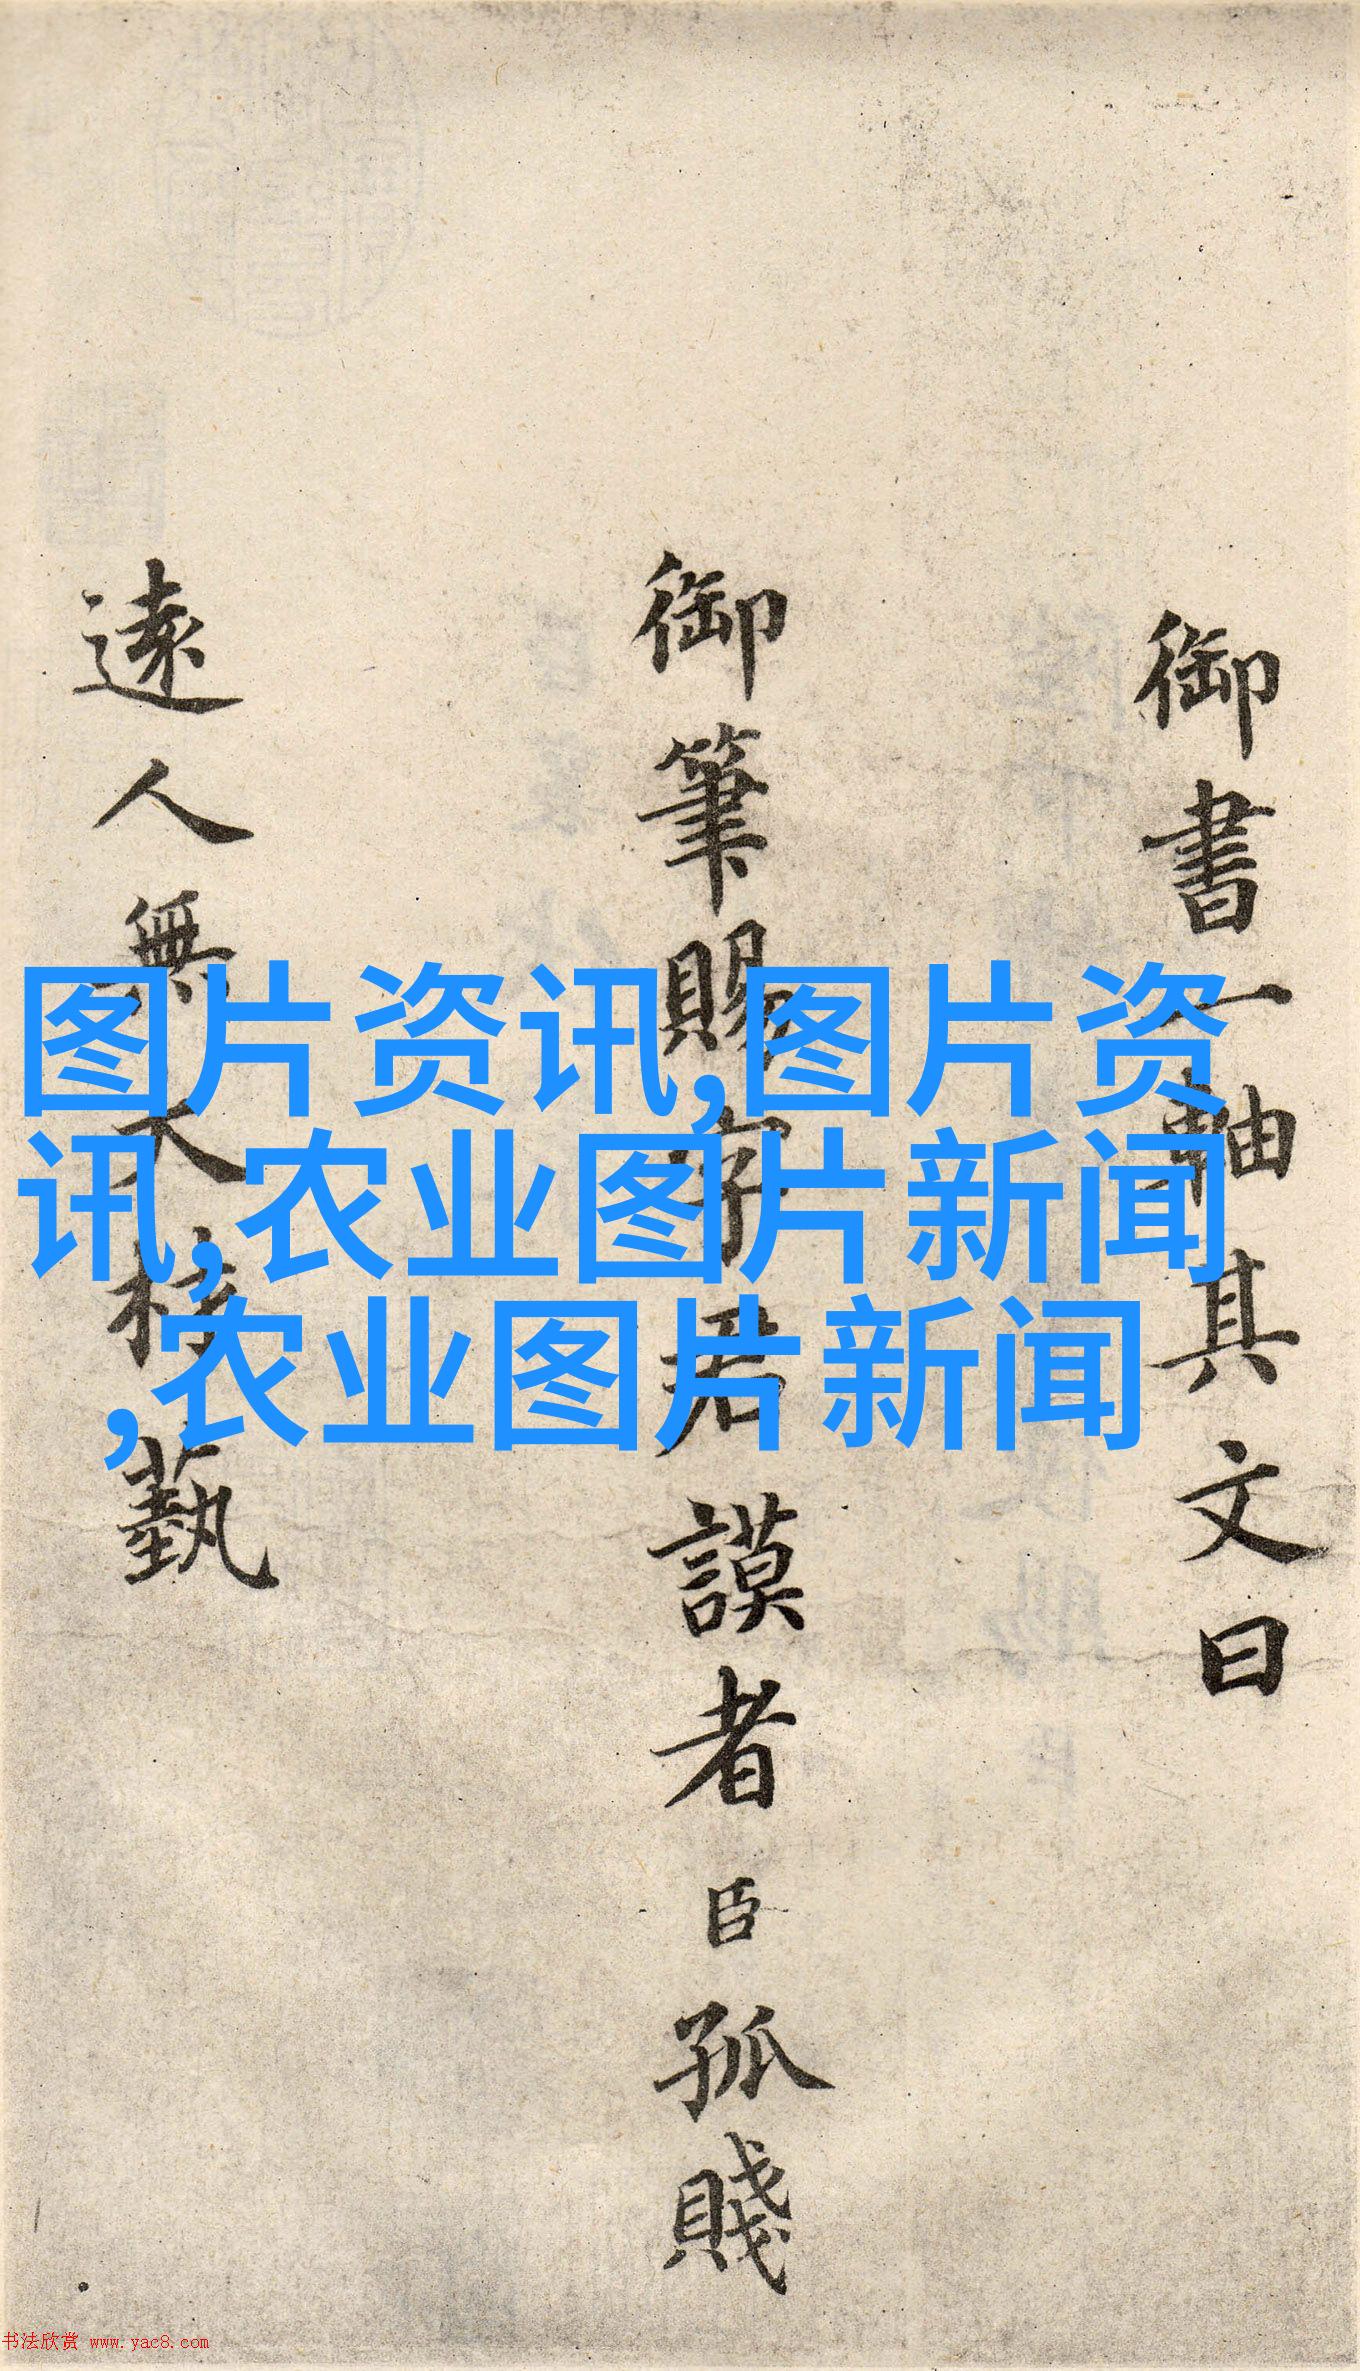 御書一軸其文曰
御筆賜字君謨者臣孤賤
遠人無大材藝
图片资讯,图片资
讯,农业图片新闻
,农业图片新闻
书法欣赏 www.yac8.com